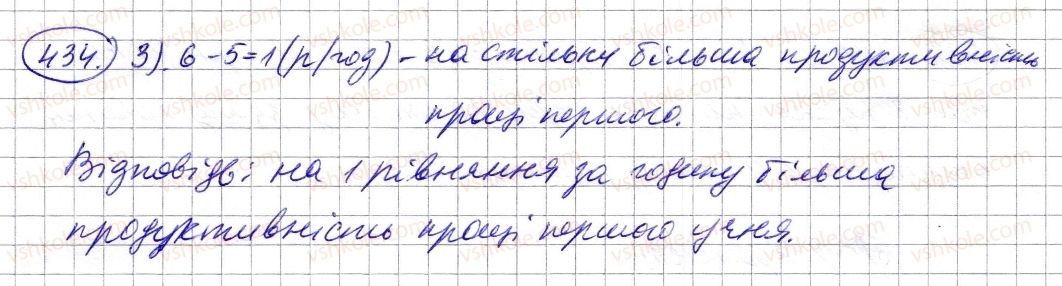 434. 3). 6-5=1(р/год) - на стільки більша продуктивність
праці першого.
Відповідь: на 1 рівняння за годину більша
продуктивність праці першого учня.